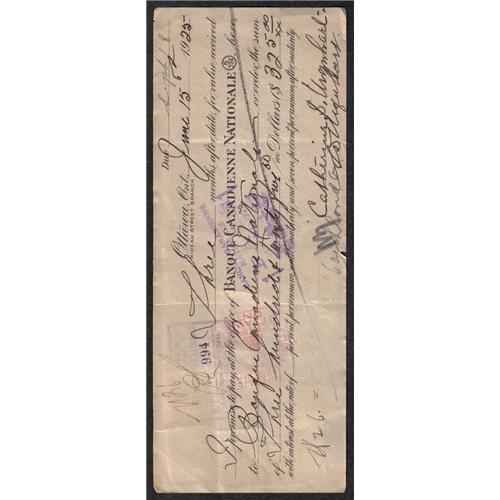 Due Sept 18
Ottawa, Ont., June 15th 1925
RIDEAU STREET BRANCH
994 Three months after date, for value received
I promise to pay, at the office of BANQUE CANADIENNE NATIONALE here
to Banque Canadienne Nationale or order, the sum
of Three hundred & twenty five 00/xx Dollars ($ 325.00/xx
with interest at the rate of percent per annum until maturity, and seven percent per annum, after maturity.
Catherine S. Urquhart
Urquhart